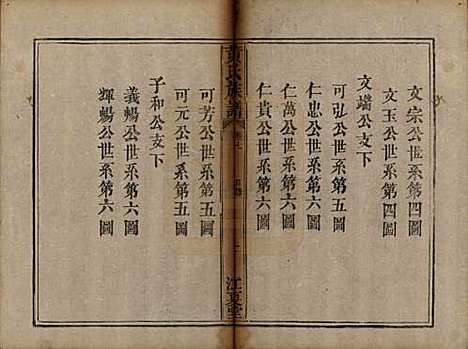 文宗公世系第四圖
文玉公世系第四圖
文端公支下
可弘公世系第五圖
仁忠公世系第六圖
仁萬公世系第六圖
仁貴公世系第六圖
黄氏族譜
江夏堂
可芳公世系第五圖
可元公世系第五圖
子和公支下
義暢公世系第六圖
輝暢公世系第六圖